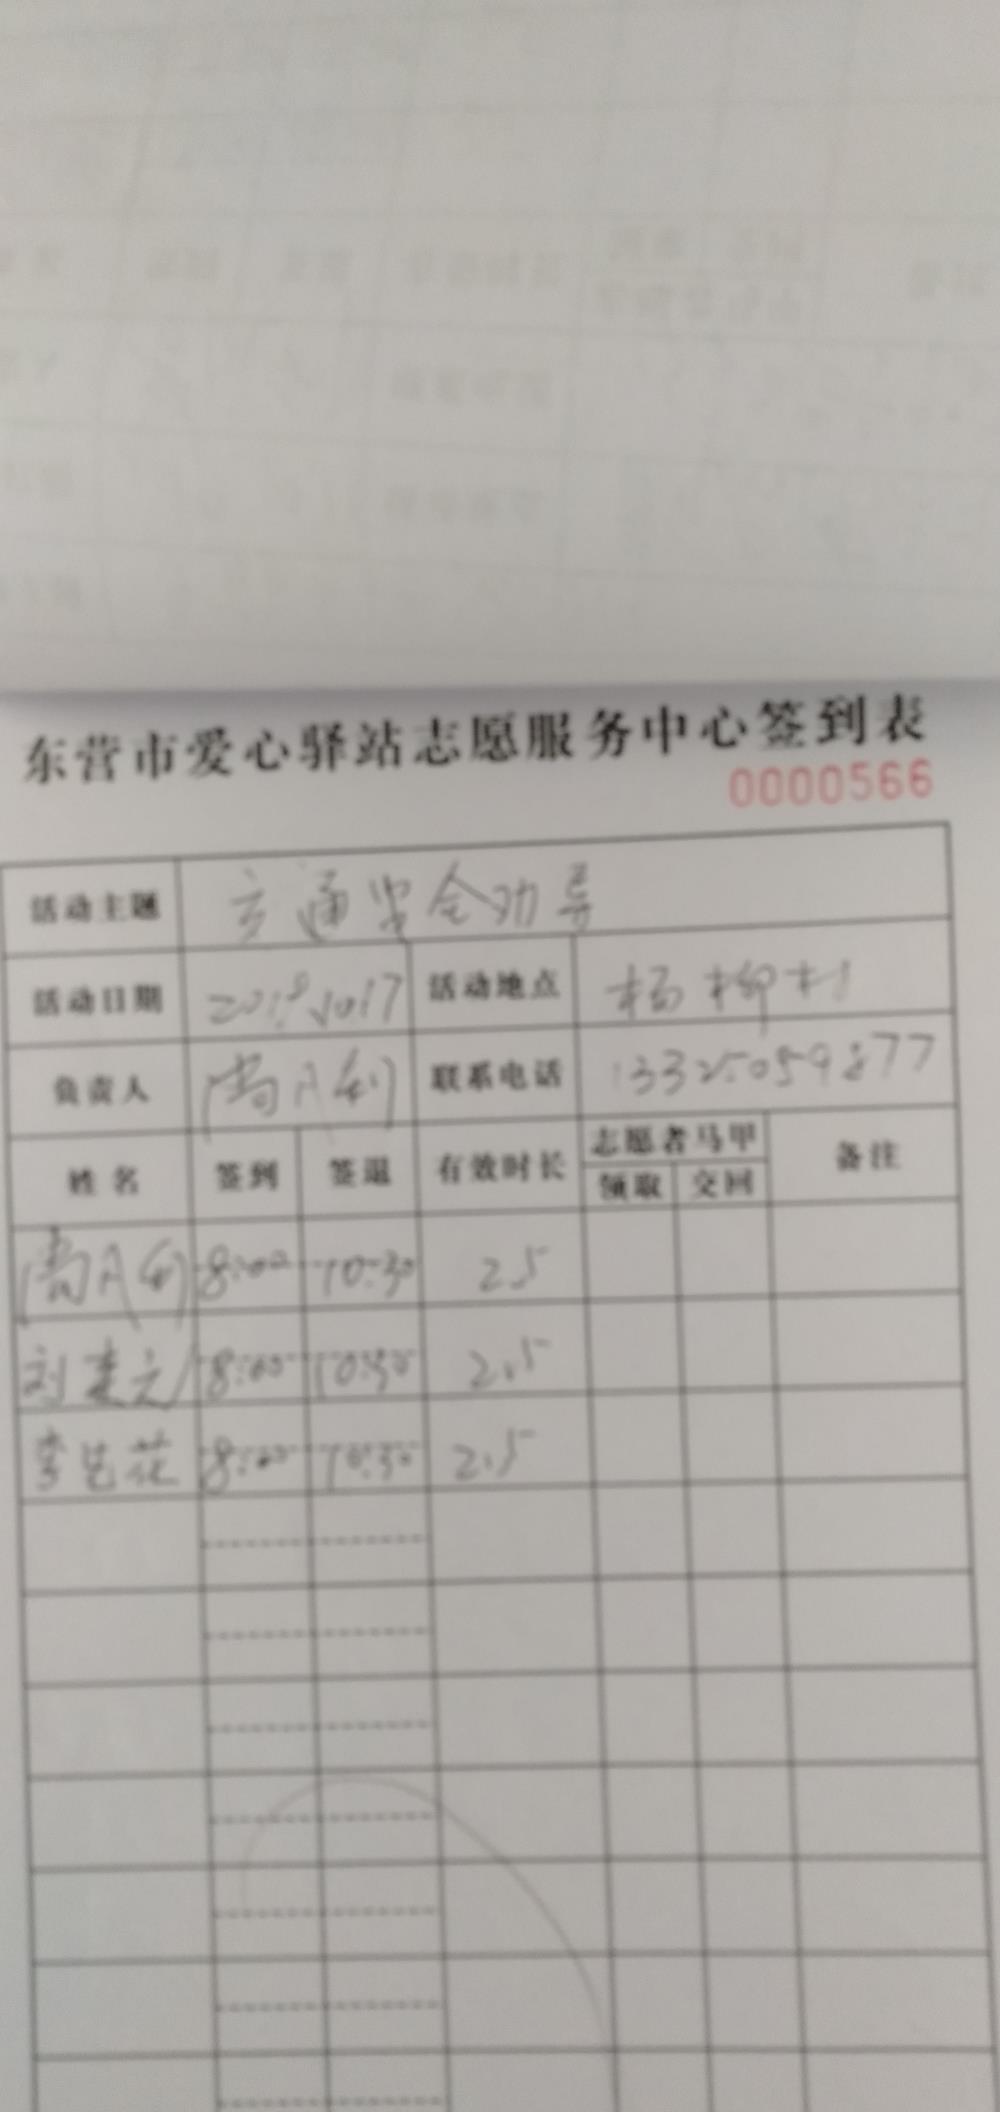 东营市爱心驿站志愿服务中心签到表
0000566
活动主题 交通安全劝导
活动日期 2019.10.17 活动地点 杨柳村
负责人 联系电话 13325059877
姓名 签到 签退 有效时长 志愿者马甲 备注
领取 交回
8:00 10:30 2.5
刘 8:00 10:30 2.5
李 花 8:00 10:30 2.5